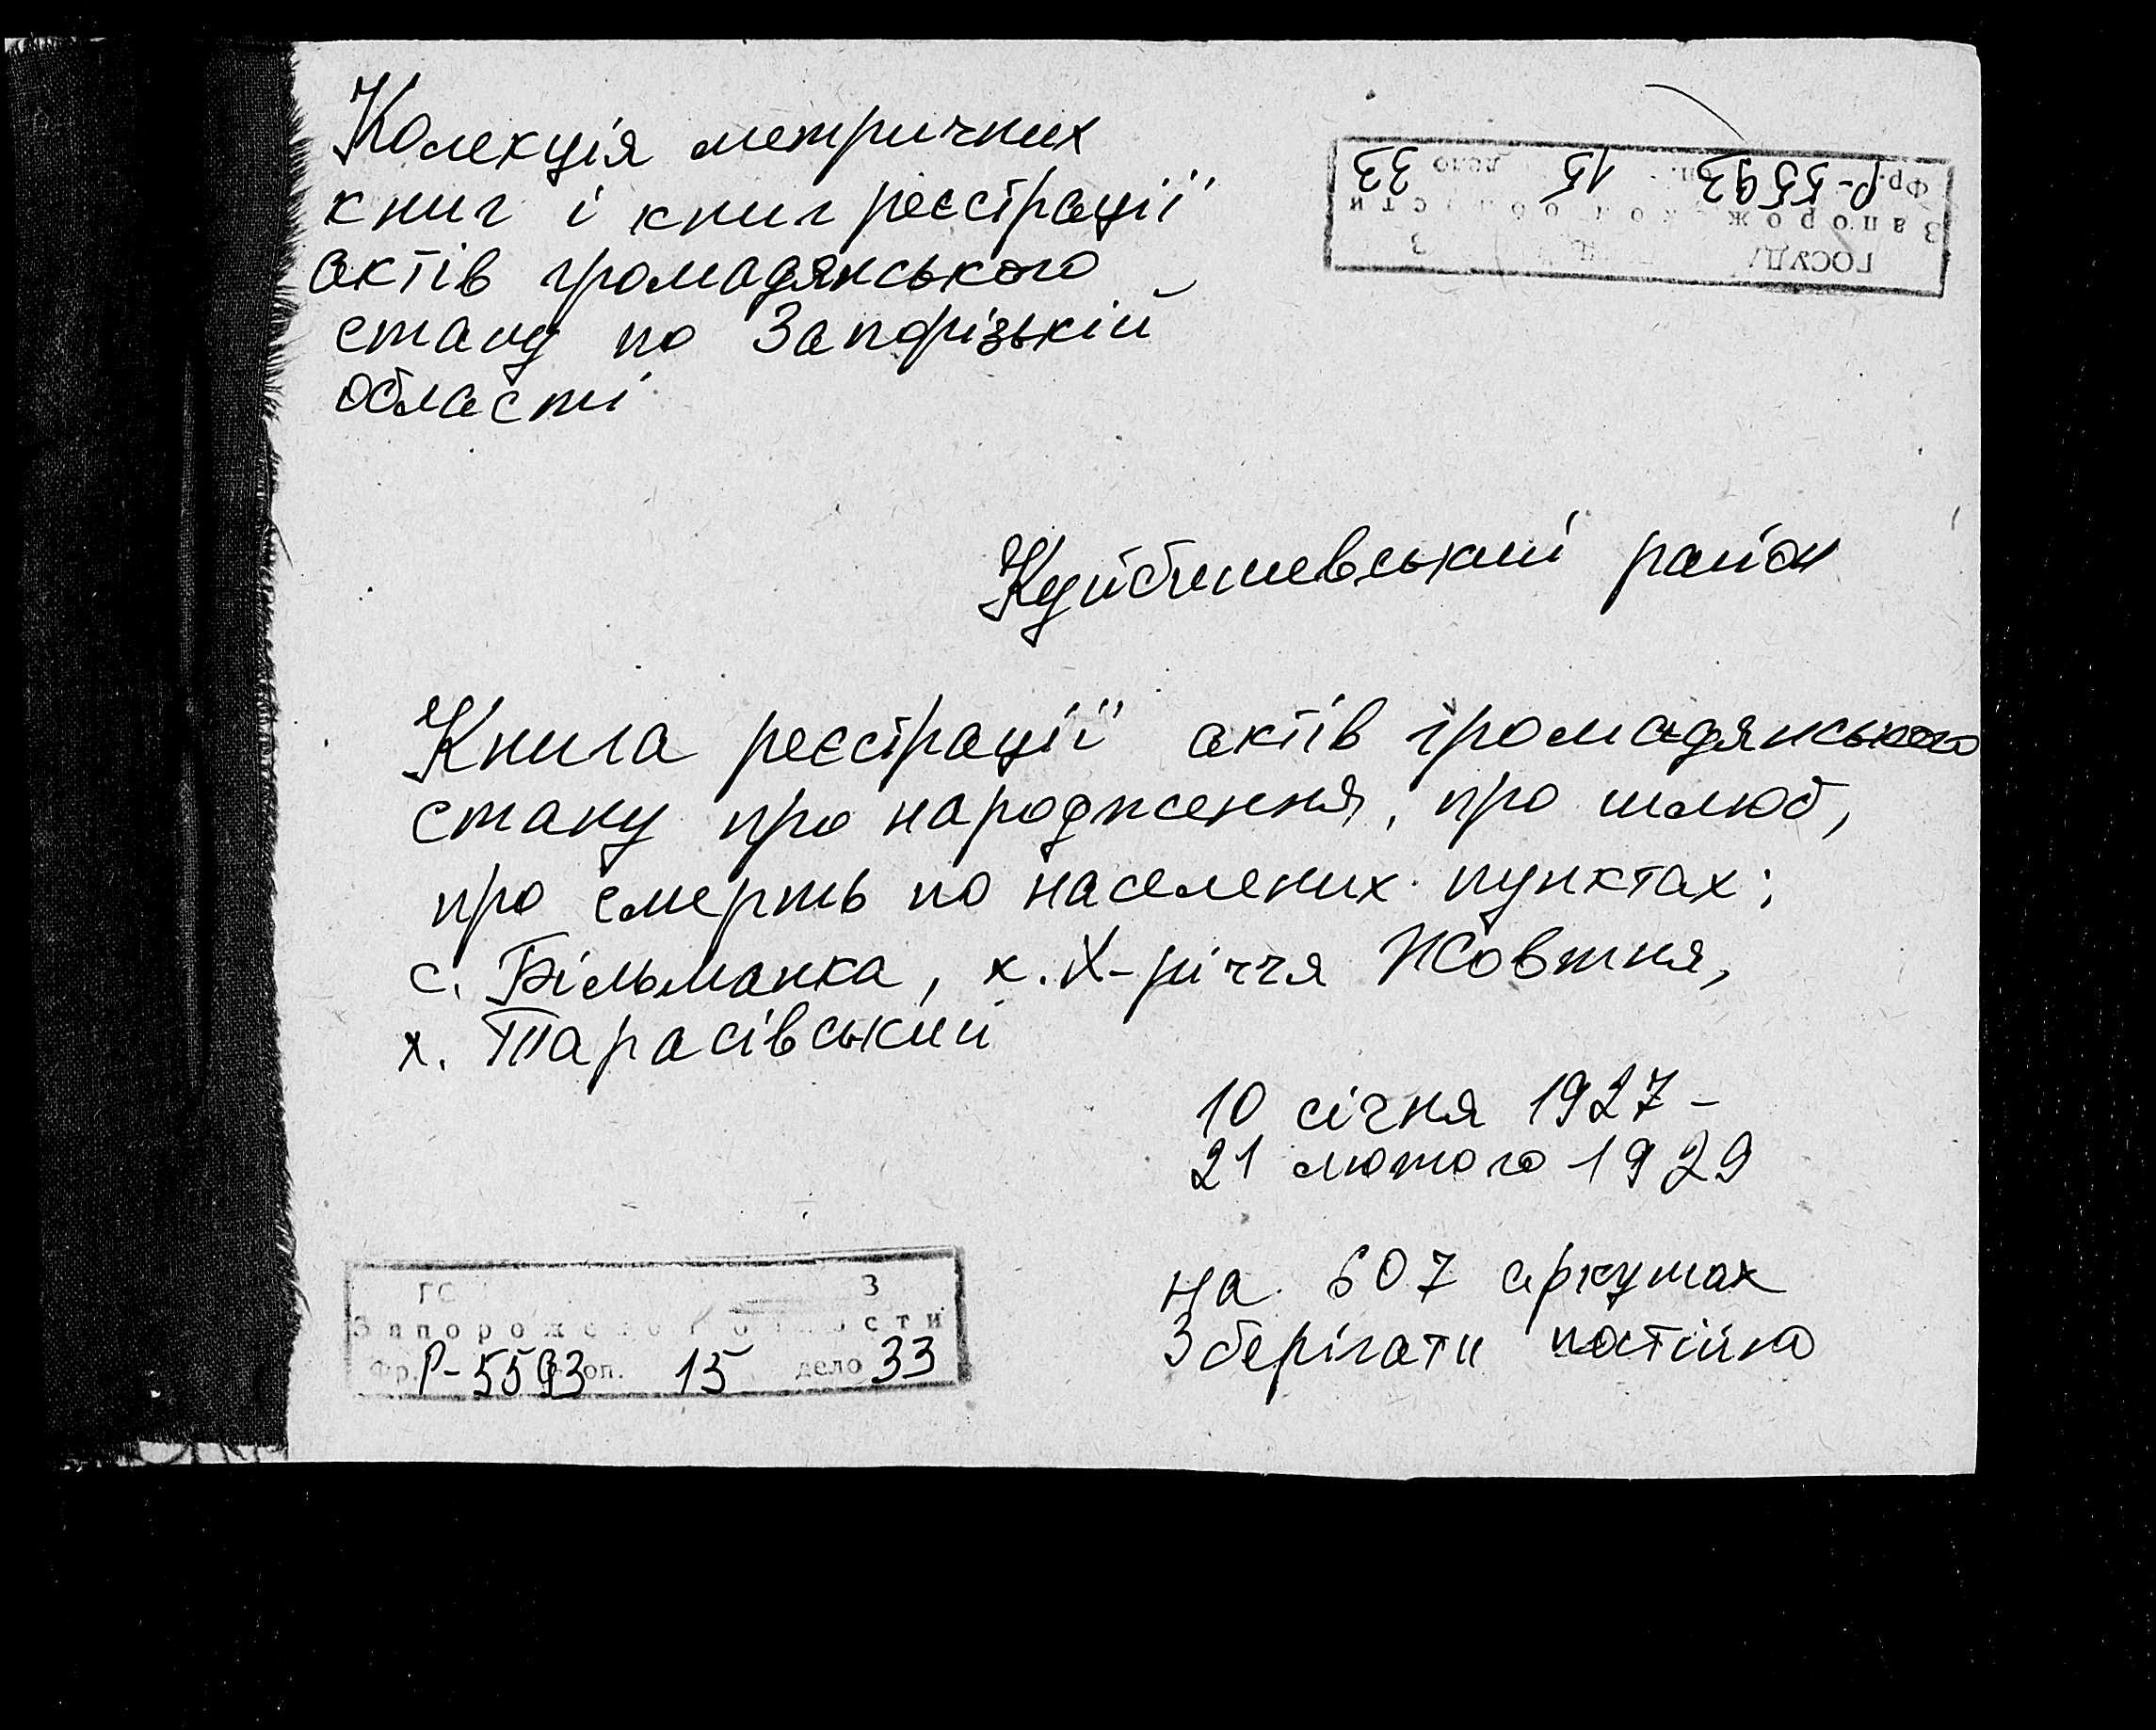 Колекція метричних
книг і книг реєстрації
актів громадянського
стану по Запорізькій
області
Фр. Р-5593 оп. 15 дело 33
Куйбишевський район
Книга реєстрації актів громадянського
стану про народження, про шлюб,
про смерть по населених пунктах:
с. Більманка, х. X-річчя Жовтня,
х. Тарасівський
10 січня 1927 -
21 лютого 1929
на 607 аркушах
Зберігати постійно
Фр. Р-5593 оп. 15 дело 33